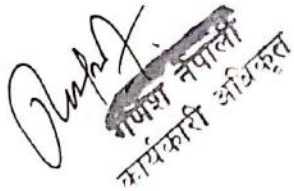 गणेश नेपाली
कार्यकारी अधिकृत